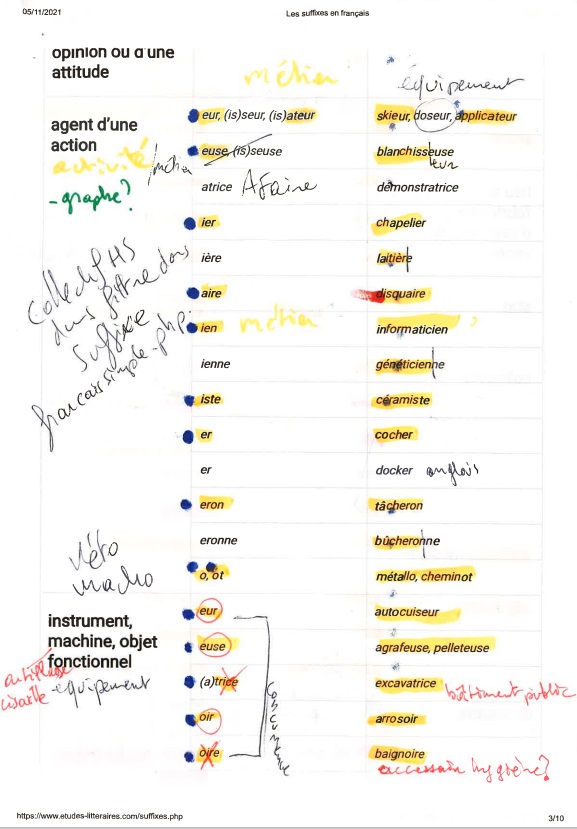 05/11/2021 Les suffixes en français
opinion ou d'une
attitude
métier équipement
agent d'une
action
eur, (is)seur, (is)ateur skieur, doseur, applicateur
activité / métier
euse, (is)seuse blanchisseuse
eur
-graphe?
atrice A Faire démonstratrice
ier chapelier
ière laitière
collectif HS
dans filtre dans
suffixe
francais simple.php
aire disquaire
ien métier informaticien ?
ienne généticienne
iste céramiste
er cocher
er docker anglais
eron tâcheron
eronne bûcheronne
véto
macho
o, ot métallo, cheminot
instrument,
machine, objet
fonctionnel
-équipement
cisaille
eur autocuiseur
euse agrafeuse, pelleteuse
(a)trice excavatrice bâtiment public
oir arrosoir
oire baignoire
accessoire hygiène?
https://www.etudes-litteraires.com/suffixes.php 3/10